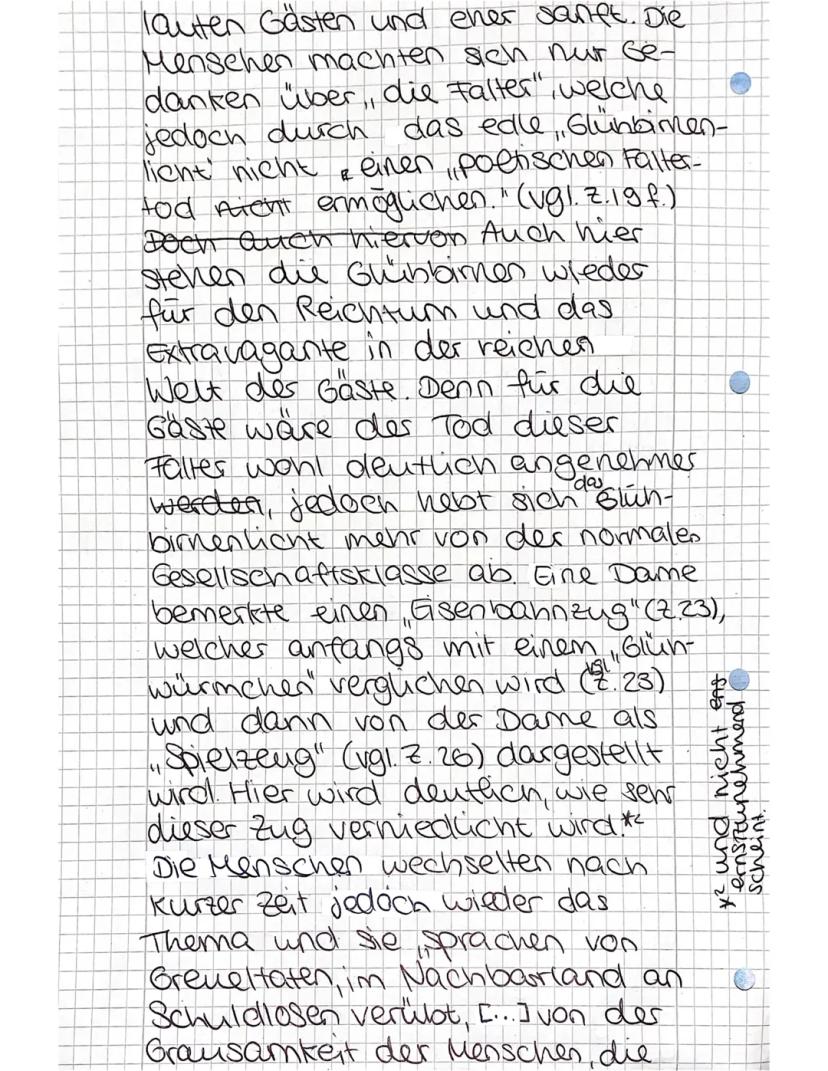 lauten Gästen und eher sanft. Die
Menschen machten sich nur Ge-
danken über „die Falter", welche
jedoch durch das edle „Glühbirnen-
licht" nicht einen „poetischen Falter-
tod nicht ermöglichen." (vgl. Z.19 f.)
Doch auch hiervon Auch hier
stehen die Glühbirnen wieder
für den Reichtum und das
Extravagante in der reichen
Welt der Gäste. Denn für die
Gäste wäre der Tod dieser
Falter wohl deutlich angenehmer
werden, jedoch hebt sich das Glüh-
birnenlicht mehr von der normalen
Gesellschaftsklasse ab. Eine Dame
bemerkte einen „Eisenbahnzug" (Z.23),
welcher anfangs mit einem „Glüh-
würmchen" verglichen wird (vgl. Z. 23)
und dann von der Dame als
„Spielzeug" (vgl. Z. 26) dargestellt
wird. Hier wird deutlich, wie sehr
dieser Zug verniedlicht wird.*2
Die Menschen wechselten nach
kurzer Zeit jedoch wieder das
Thema und sie „sprachen von
Greueltaten, im Nachbarland an
Schuldlosen verübt, [...] von der
Grausamkeit der Menschen, die
*2 und nicht ens
ernstzunehmend
scheint.